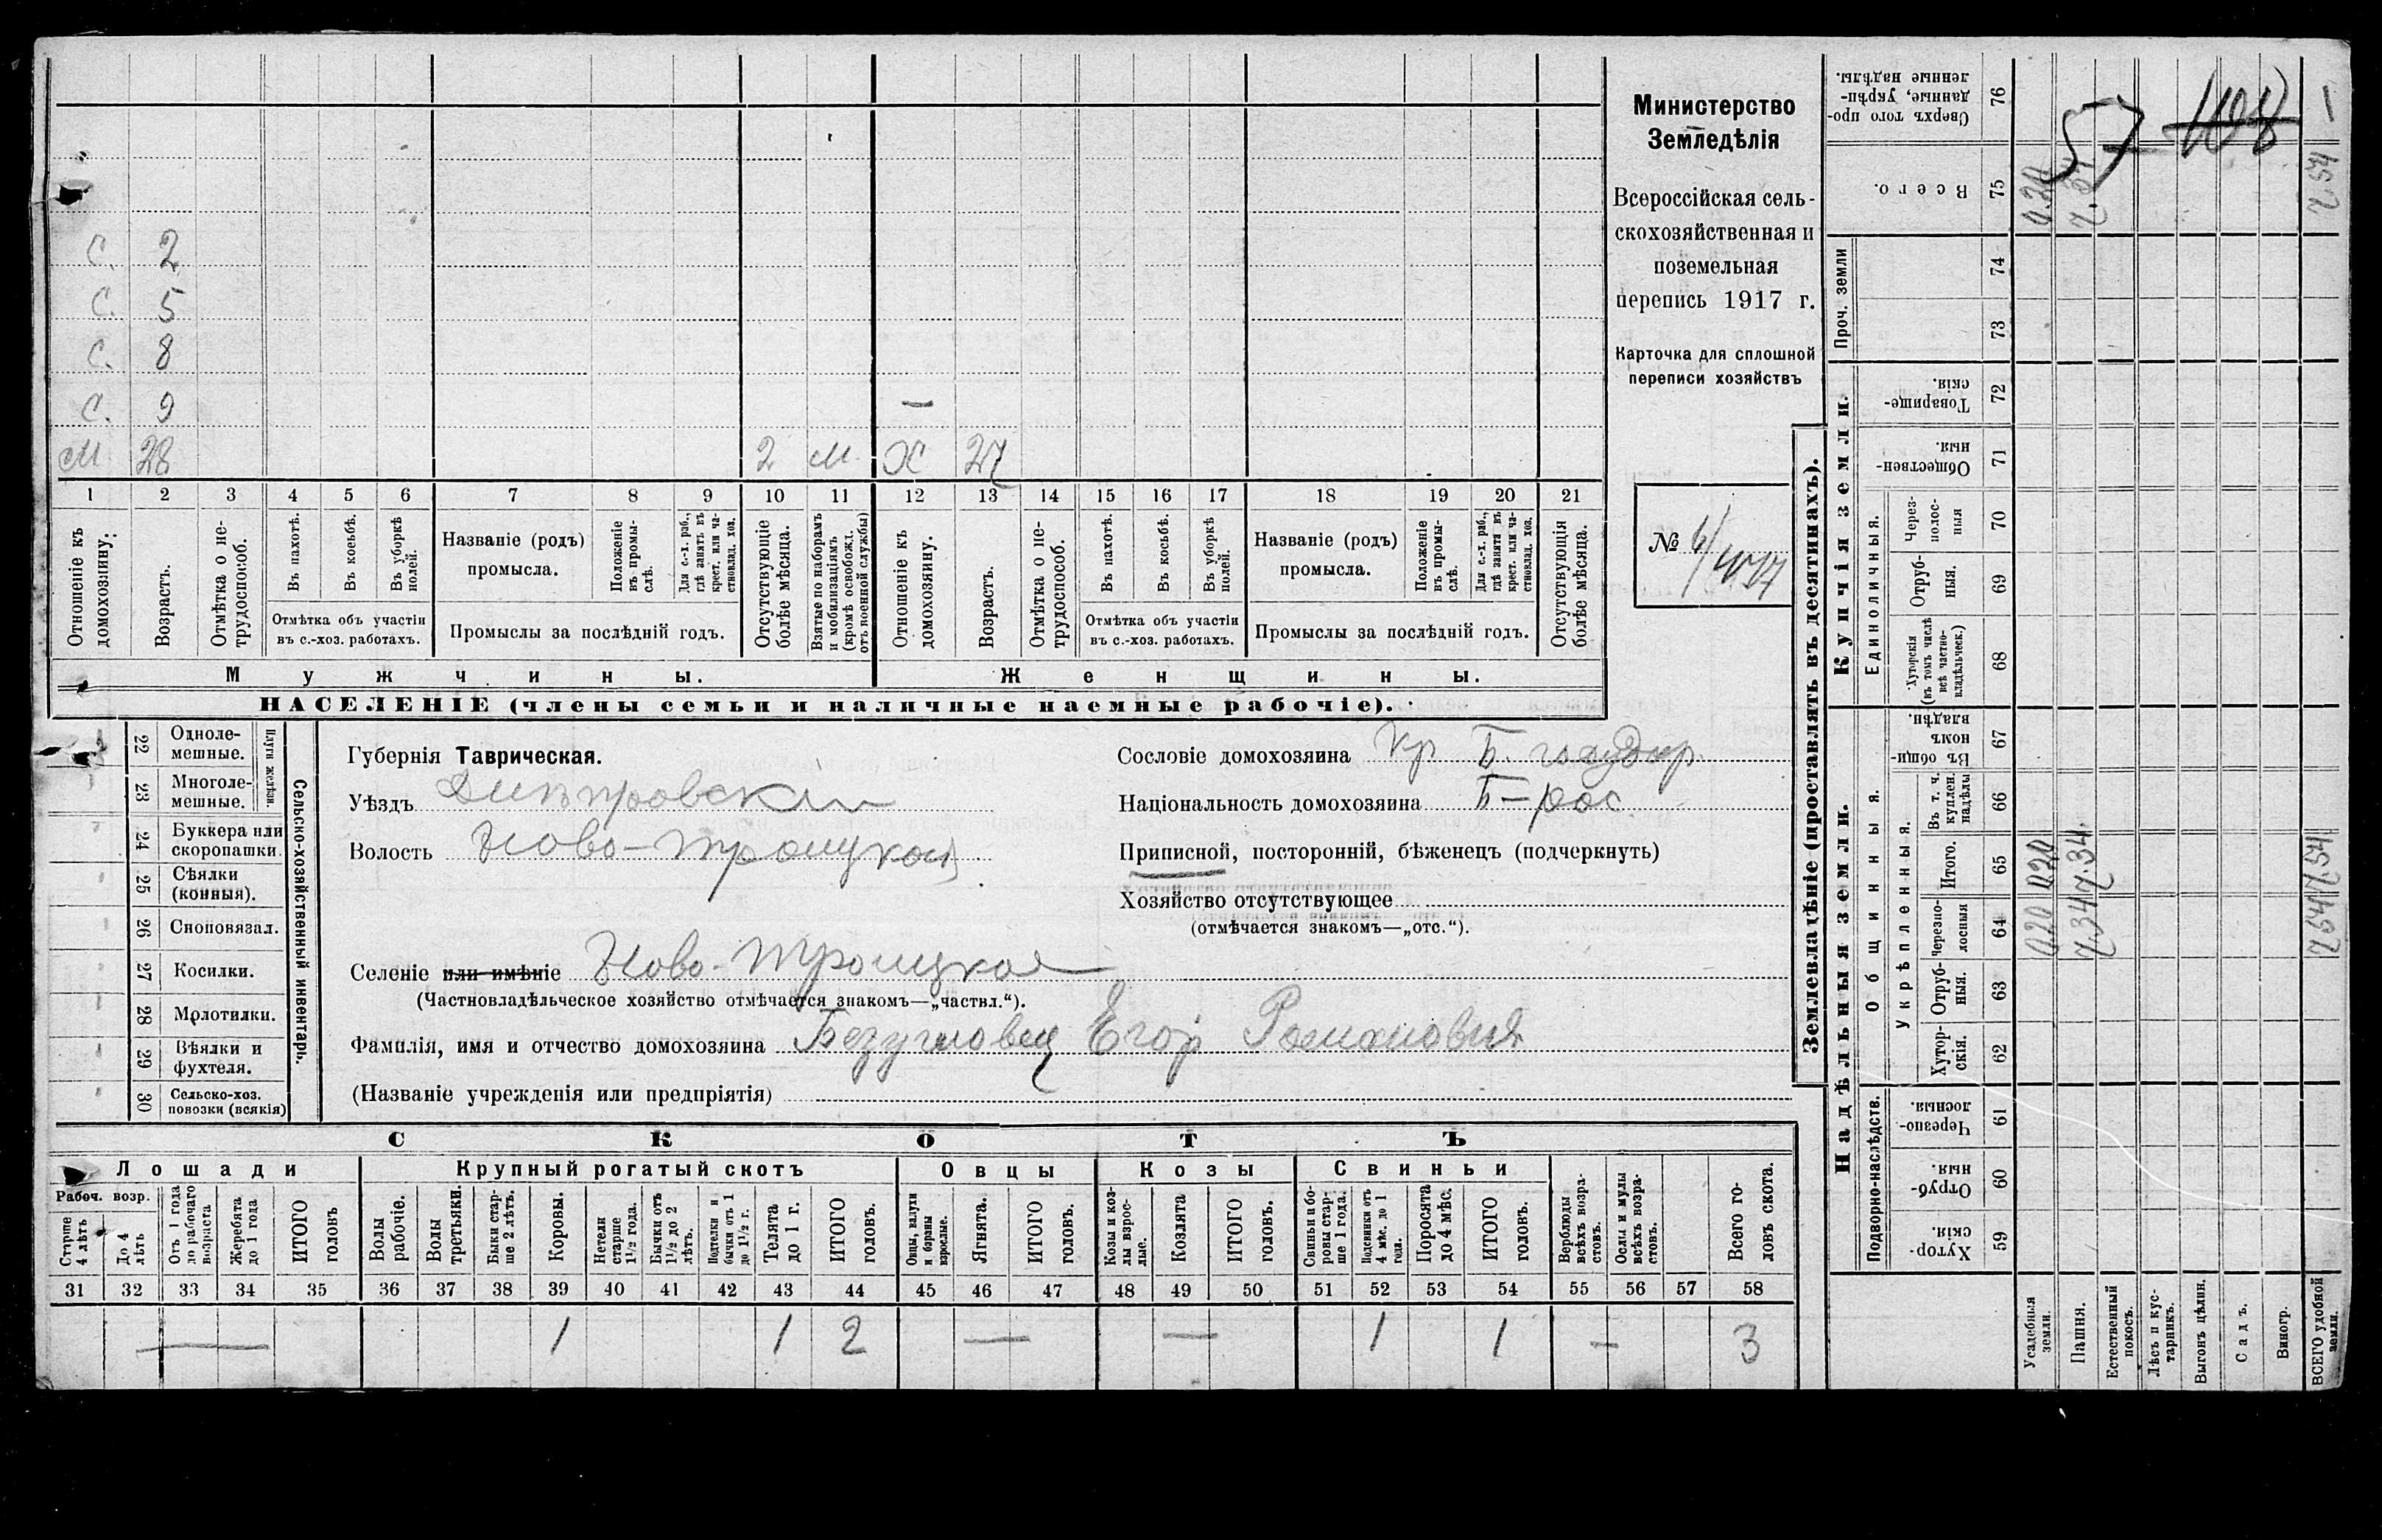 С. 2
С. 5
С. 8
С. 9 —
М 28 2 М. Х 27
1 2 3 4 5 6 7 8 9 10 11 12 13 14 15 16 17 18 19 20 21
Отношеніе къ домохозяину.
Возрастъ.
Отмѣтка о не-трудоспособ.
Въ пахотѣ.
Въ косьбѣ.
Въ уборкѣ полей.
Отмѣтка объ участіи
въ с.-хоз. работахъ.
Названіе (родъ)
промысла.
Положеніе въ промы-слѣ.
Для с.-х. раб., гдѣ занятъ въ крест. или ча-стновлад. хоз.
Промыслы за послѣдній годъ.
Отсутствующіе болѣе мѣсяца.
Взятые по наборамъ и мобилизаціямъ (кромѣ освобожд. отъ военной службы)
Отношеніе къ домохозяину.
Возрастъ.
Отмѣтка о не-трудоспособ.
Въ пахотѣ.
Въ косьбѣ.
Въ уборкѣ полей.
Отмѣтка объ участіи
въ с.-хоз. работахъ.
Названіе (родъ)
промысла.
Положеніе въ промы-слѣ.
Для с.-х. раб., гдѣ занята въ крест. или ча-стновлад. хоз.
Промыслы за послѣдній годъ.
Отсутствующія болѣе мѣсяца.
Мужчины.
Женщины.
НАСЕЛЕНІЕ (члены семьи и наличные наемные рабочіе).
Министерство
Земледѣлія
Всероссійская сель-
скохозяйственная и
поземельная
перепись 1917 г.
Карточка для сплошной
переписи хозяйствъ
№
22 Одноле-мешные.
23 Многоле-мешные.
Плуги желѣзн.
24 Буккера или скоропашки.
25 Сѣялки (конныя).
26 Сноповязал.
27 Косилки.
28 Молотилки.
29 Вѣялки и фухтеля.
30 Сельско-хоз. повозки (всякія)
Сельско-хозяйственный инвентарь.
Губернія Таврическая.
Уѣздъ Днѣпровскій
Волость Ново-Троицкая
Селеніе или имѣніе Ново-Троицкое
(Частновладѣльческое хозяйство отмѣчается знакомъ—„частвл.“).
Фамилія, имя и отчество домохозяина Безугловец Егор Романович
(Названіе учрежденія или предпріятія)
Сословіе домохозяина Кр Б. государ.
Національность домохозяина Б-рос
Приписной, посторонній, бѣженецъ (подчеркнуть)
Хозяйство отсутствующее
(отмѣчается знакомъ—„отс.“).
СКОТЪ
Лошади
Крупный рогатый скотъ
Овцы
Козы
Свиньи
Рабоч. возр.
Старше 4 лѣтъ
До 4 лѣтъ
Отъ 1 года до рабочаго возраста
Жеребята до 1 года
ИТОГО головъ
Волы рабочіе.
Волы третьяки.
Быки стар-ше 2 лѣтъ.
Коровы.
Нетели старше 1½ года.
Бычки отъ 1½ до 2 лѣтъ.
Подтелки и бычки отъ 1 до 1½ г.
Телята до 1 г.
ИТОГО головъ.
Овцы, валухи и бараны взрослые.
Ягнята.
ИТОГО головъ.
Козы и коз-лы взрос-лые.
Козлята
ИТОГО головъ.
Свиньи и бо-ровы стар-ше 1 года.
Подсвинки отъ 4 мѣс. до 1 года.
Поросята до 4 мѣс.
ИТОГО головъ.
Верблюды всѣхъ возра-стовъ.
Ослы и мулы всѣхъ возра-стовъ.
Всего го-ловъ скота.
31 32 33 34 35 36 37 38 39 40 41 42 43 44 45 46 47 48 49 50 51 52 53 54 55 56 57 58
— 1 1 2 — — 1 1 — 3
Землевладѣніе (проставлять въ десятинахъ).
Надѣльныя земли.
Купчія земли.
Проч. земли
Подворно-наслѣдств.
Общинныя.
Укрѣпленныя.
Единоличныя.
57 108
76 Сверхъ того про-данные, укрѣп-ленные надѣлы. —
75 Всего. 0.20 7.34 7.54
74
73
72 Товарище-скія.
71 Обществен-ныя.
70 Через-полос-ныя
69 Отруб-ныя.
68 Хуторскія (въ томъ числѣ всѣ частно-владѣльческ.)
67 Въ общин-номъ владѣн.
66 Въ т. ч. куплен. надѣлы
65 Итого. 0.20 7.34 7.54
64 Черезпо-лосныя 0.20 7.34 7.54
63 Отруб-ныя.
62 Хутор-скія.
61 Черезпо-лосныя.
60 Отруб-ныя.
59 Хутор-скія.
Усадебныя земли.
Пашня.
Естественный покосъ.
Лѣсъ и кус-тарникъ.
Выгонъ цѣлин.
Садъ.
Виногр.
ВСЕГО удобной земли.